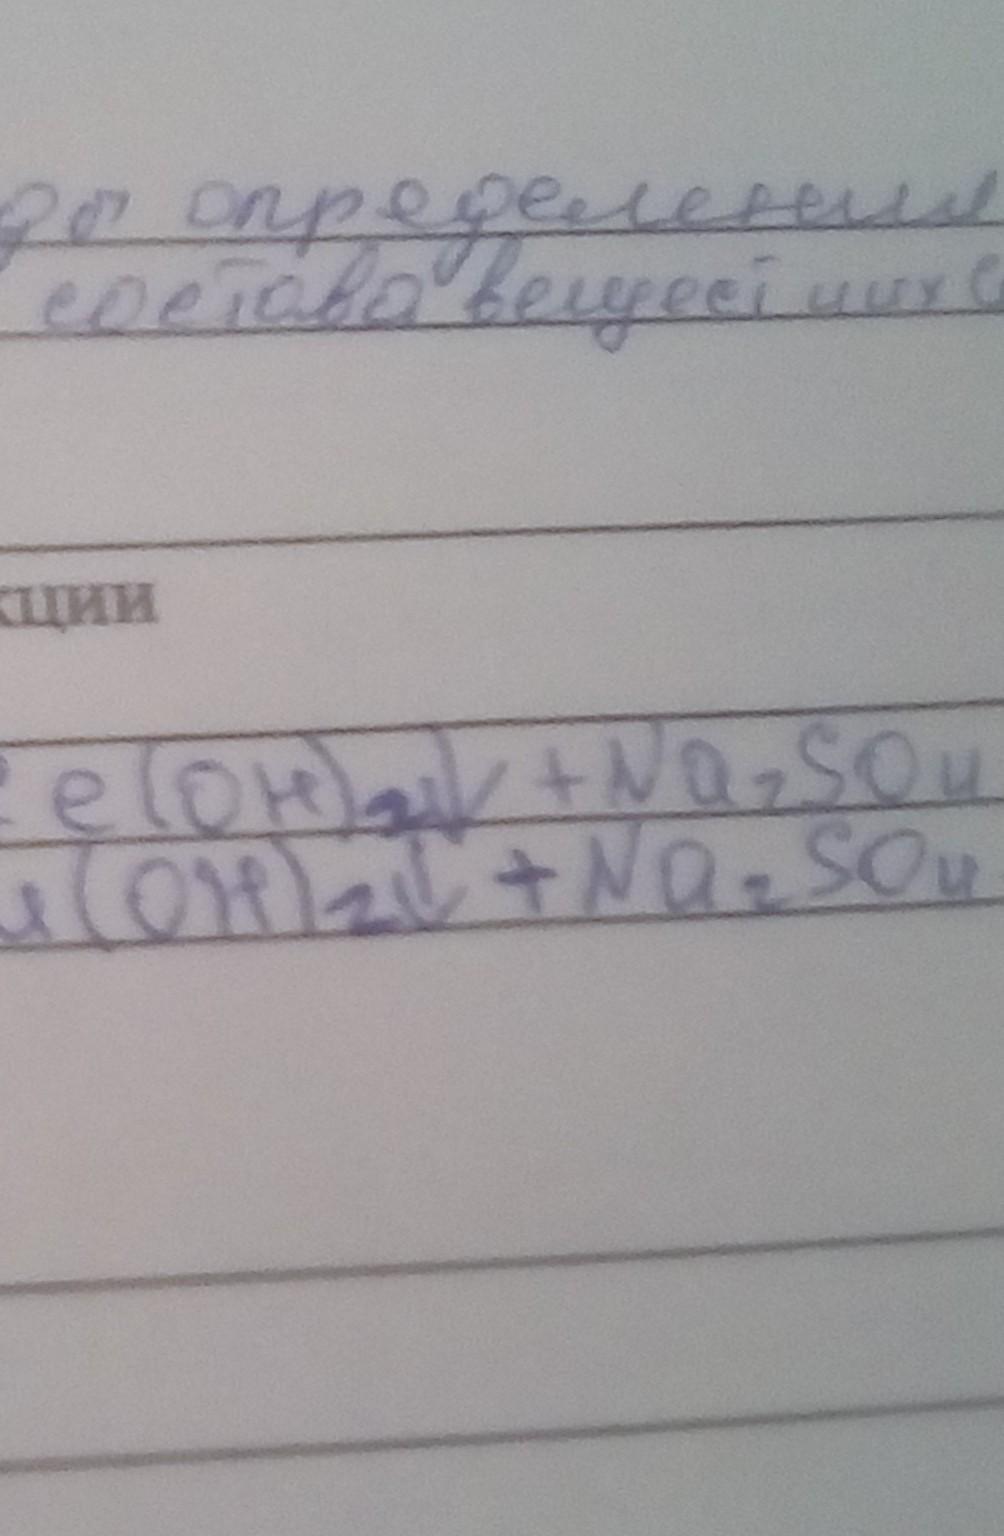 определения
состава вещест
кции
e(OH)₂↓ + Na₂SO₄
u(OH)₂↓ + Na₂SO₄